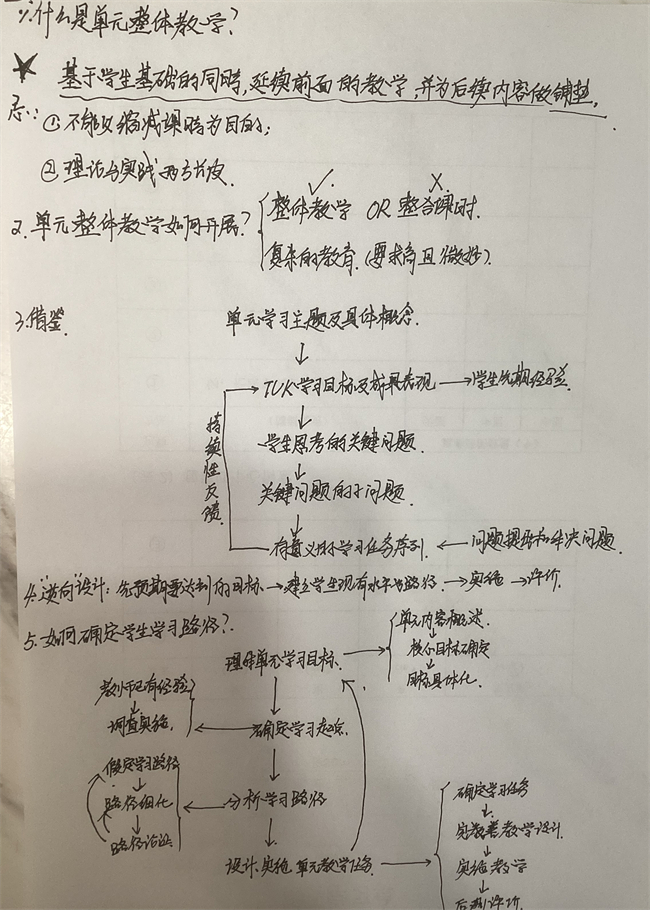 1. 什么是单元整体教学？
★ 基于学生基础的同时，延续前面的教学，并为后续内容做铺垫。
忌：①不能以缩减课时为目的；
②理论与实践两张皮。
✓ ×
2. 单元整体教学如何开展？ 整体教学 OR 整合课时.
复杂的教育.（要求高且做好）.
3. 借鉴. 单元学习主题及具体概念.
TUK学习目标及成果表现 → 学生先期经验.
学生思考的关键问题.
持续性反馈.
关键问题的子问题.
有意义的小学习任务序列. ← 问题提出和解决问题.
4. "逆向"设计：先预期要达到的目标 → 建立学生现有水平与路径. → 实施 → 评价.
5. 如何确定学生学习路径？.
单元内容概述.
理解单元学习目标. 核心目标确定
目标具体化.
教师已有经验
调查实施. 确定学习起点.
假定学习路径
路径细化 分析学习路径
路径论证.
确定学习任务
完善教学设计.
设计.实施.单元教学任务 实施教学
后测评价.